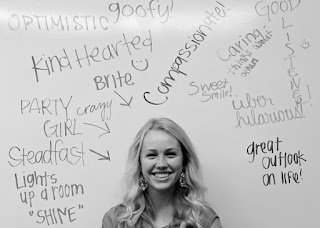 OPTIMISTIC
goofy!
Compassionate!
GOOD
LISTENER!
Kind Hearted
Brite
Caring
thinks about
Sweet
Smile!
PARTY
GIRL
crazy
über
hilarious!
Steadfast
great
outlook
on life!
Lights
up a room
"SHINE"